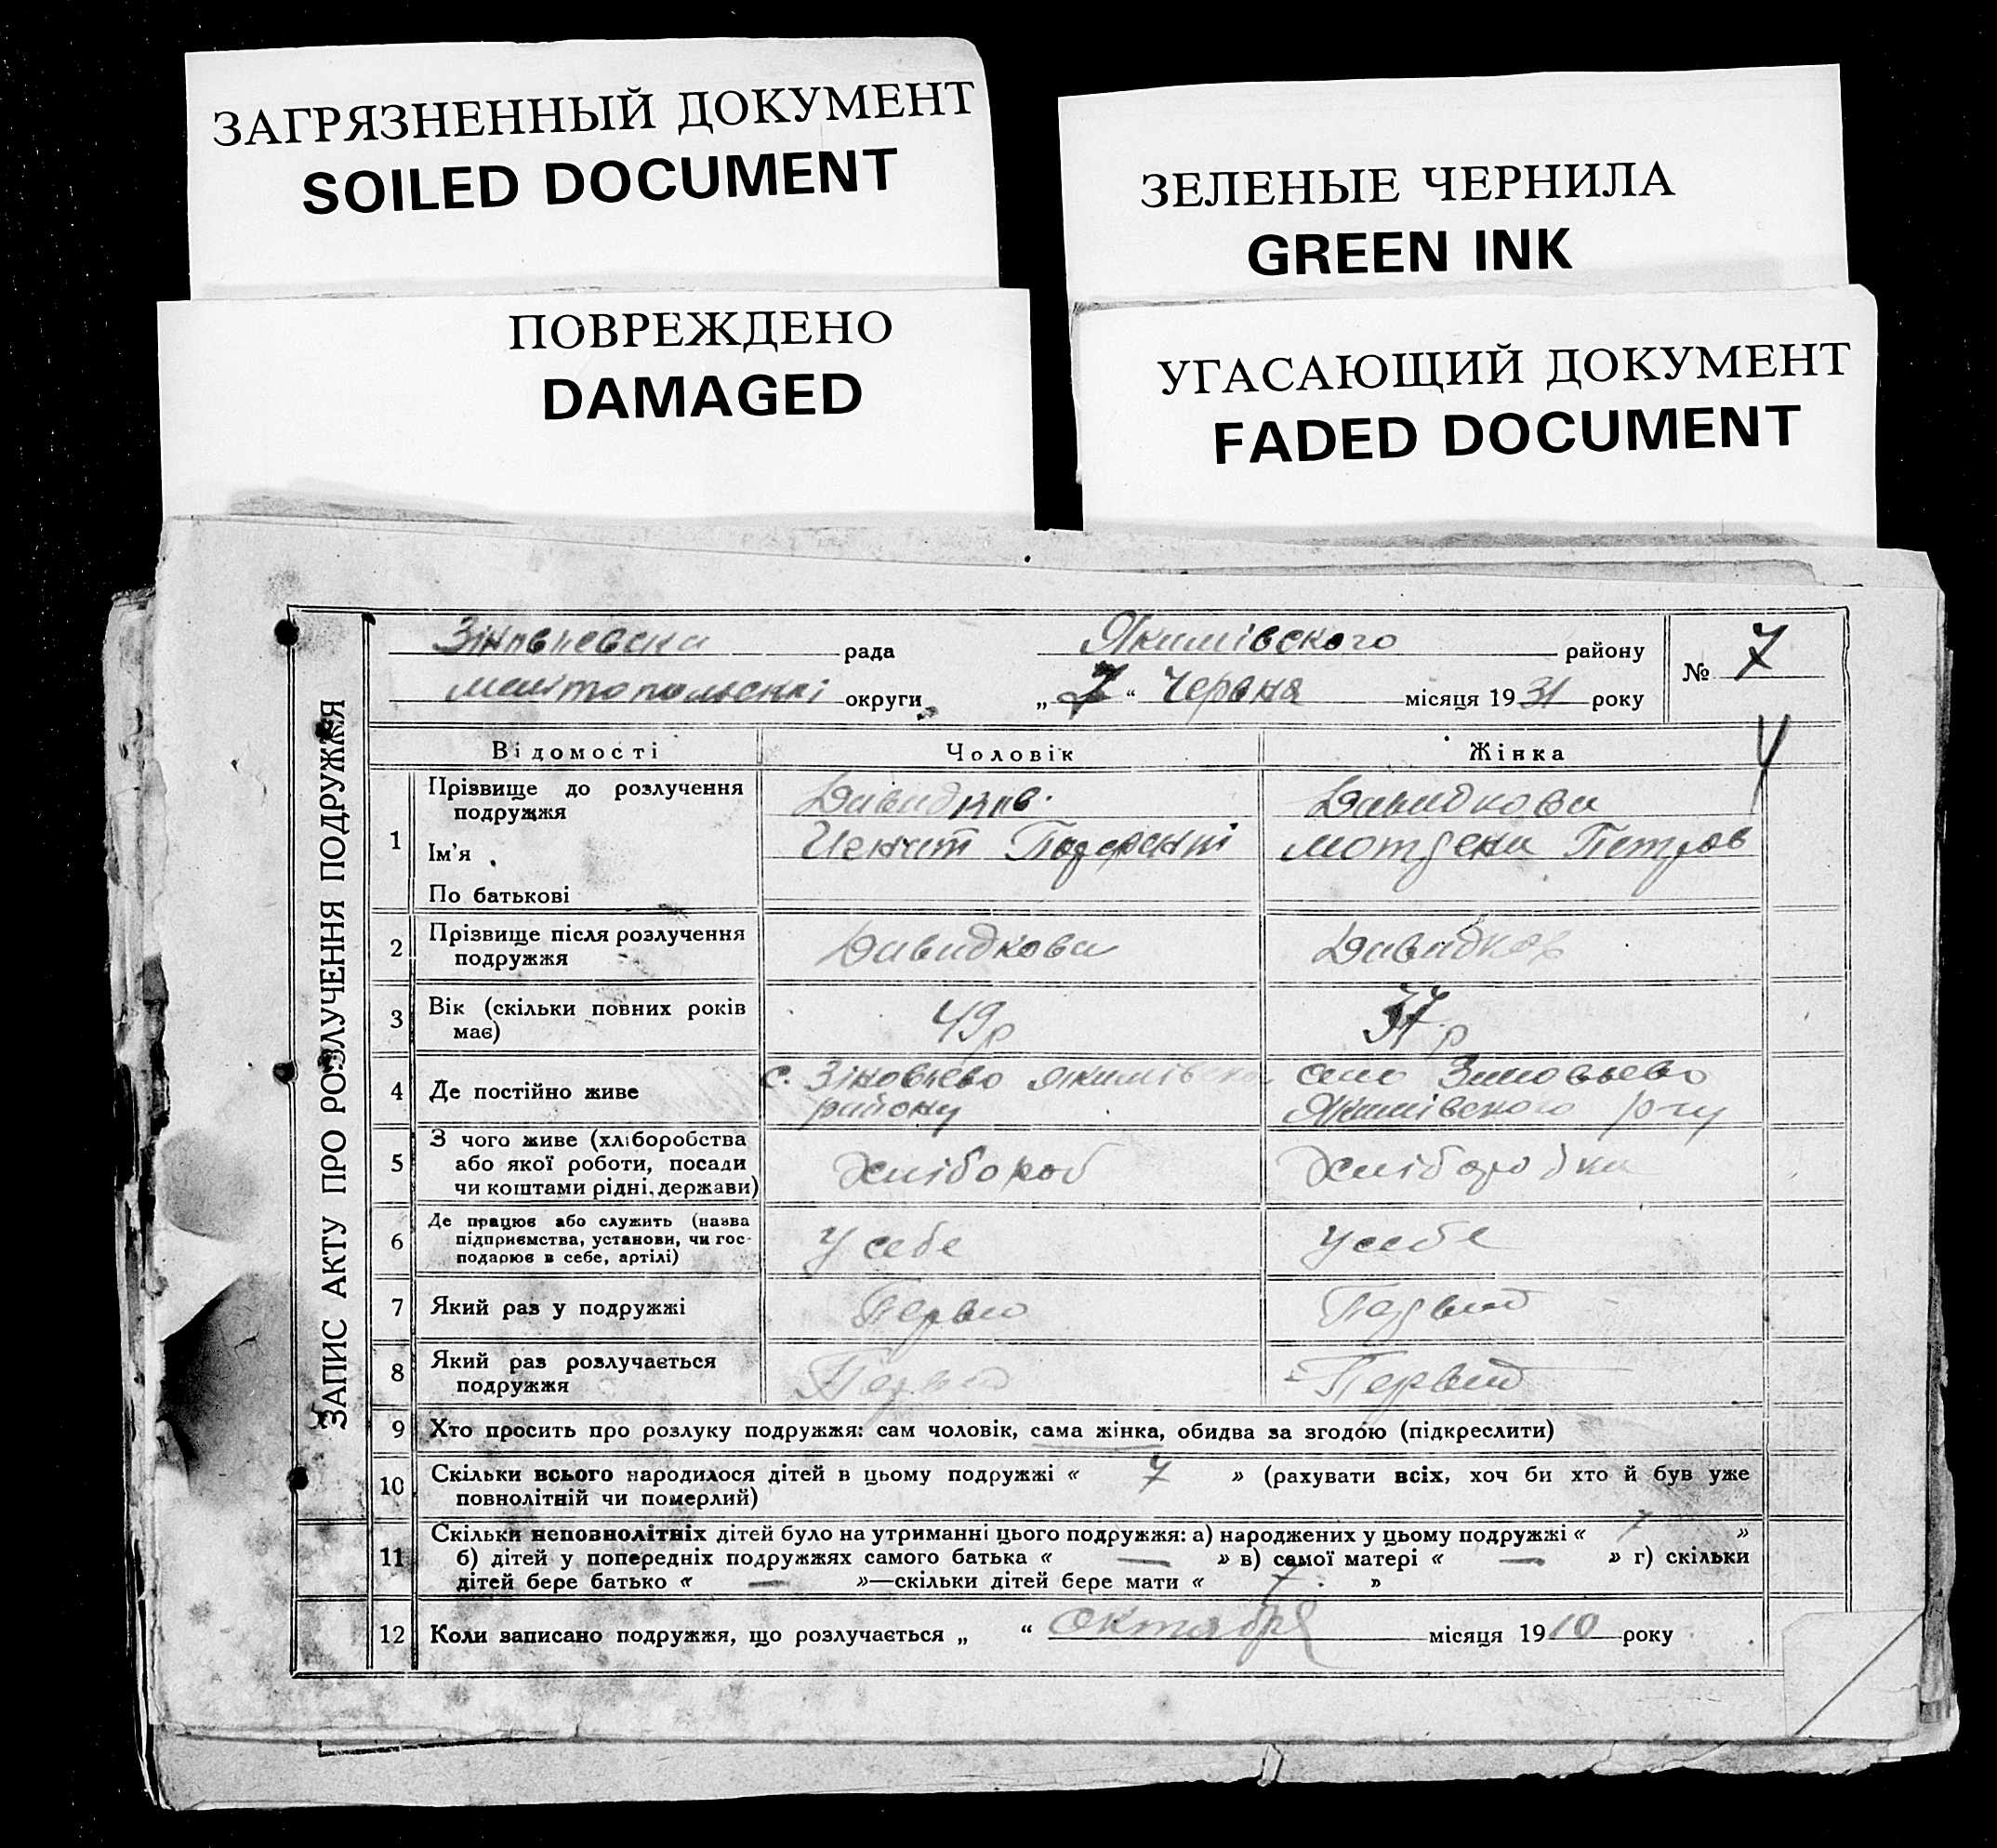 ЗАГРЯЗНЕННЫЙ ДОКУМЕНТ
SOILED DOCUMENT
ЗЕЛЕНЫЕ ЧЕРНИЛА
GREEN INK
ПОВРЕЖДЕНО
DAMAGED
УГАСАЮЩИЙ ДОКУМЕНТ
FADED DOCUMENT
ЗАПИС АКТУ ПРО РОЗЛУЧЕННЯ ПОДРУЖЖЯ
рада Якимівского району № 7
округи „ 7 “ Червня місяця 19 31 року
Відомості Чоловік Жінка
1 Прізвище до розлучення Давидков Давидкова
подружжя
Ім'я Петров
По батькові
2 Прізвище після розлучення Давидкова Давидков
подружжя
3 Вік (скільки повних років 49 р 37 р
має)
4 Де постійно живе с. Зіновієво Якимівско Зиновьево
району Якимівского р-ну
5 З чого живе (хліборобства Хлібороб Хліборобка
або якої роботи, посади
чи коштами рідні, держави)
6 Де працює або служить (назва У себе У себе
підприємства, установи, чи гос-
подарює в себе, артілі)
7 Який раз у подружжі Первий
8 Який раз розлучається Первий Первий
подружжя
9 Хто просить про розлуку подружжя: сам чоловік, сама жінка, обидва за згодою (підкреслити)
10 Скільки всього народилося дітей в цьому подружжі « 7 » (рахувати всіх, хоч би хто й був уже
повнолітній чи померлий)
11 Скільки неповнолітніх дітей було на утриманні цього подружжя: а) народжених у цьому подружжі « 7 »
б) дітей у попередніх подружжях самого батька « — » в) самої матері « — » г) скільки
дітей бере батько « — »—скільки дітей бере мати « 7 »
12 Коли записано подружжя, що розлучається „ “ Октября місяця 19 10 року